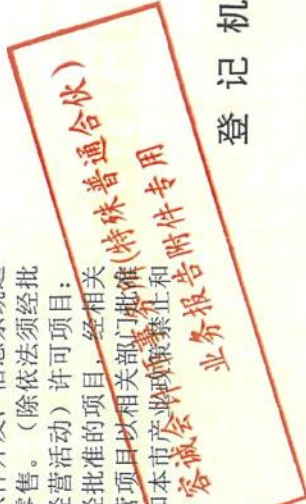 件开发；信息系统运
零售。（除依法须经批
经营活动）许可项目：
经批准的项目，经相关
营项目以相关部门批准
和本市产业政策禁止和
容诚会计师事务所(特殊普通合伙)
业务报告附件专用
登记机